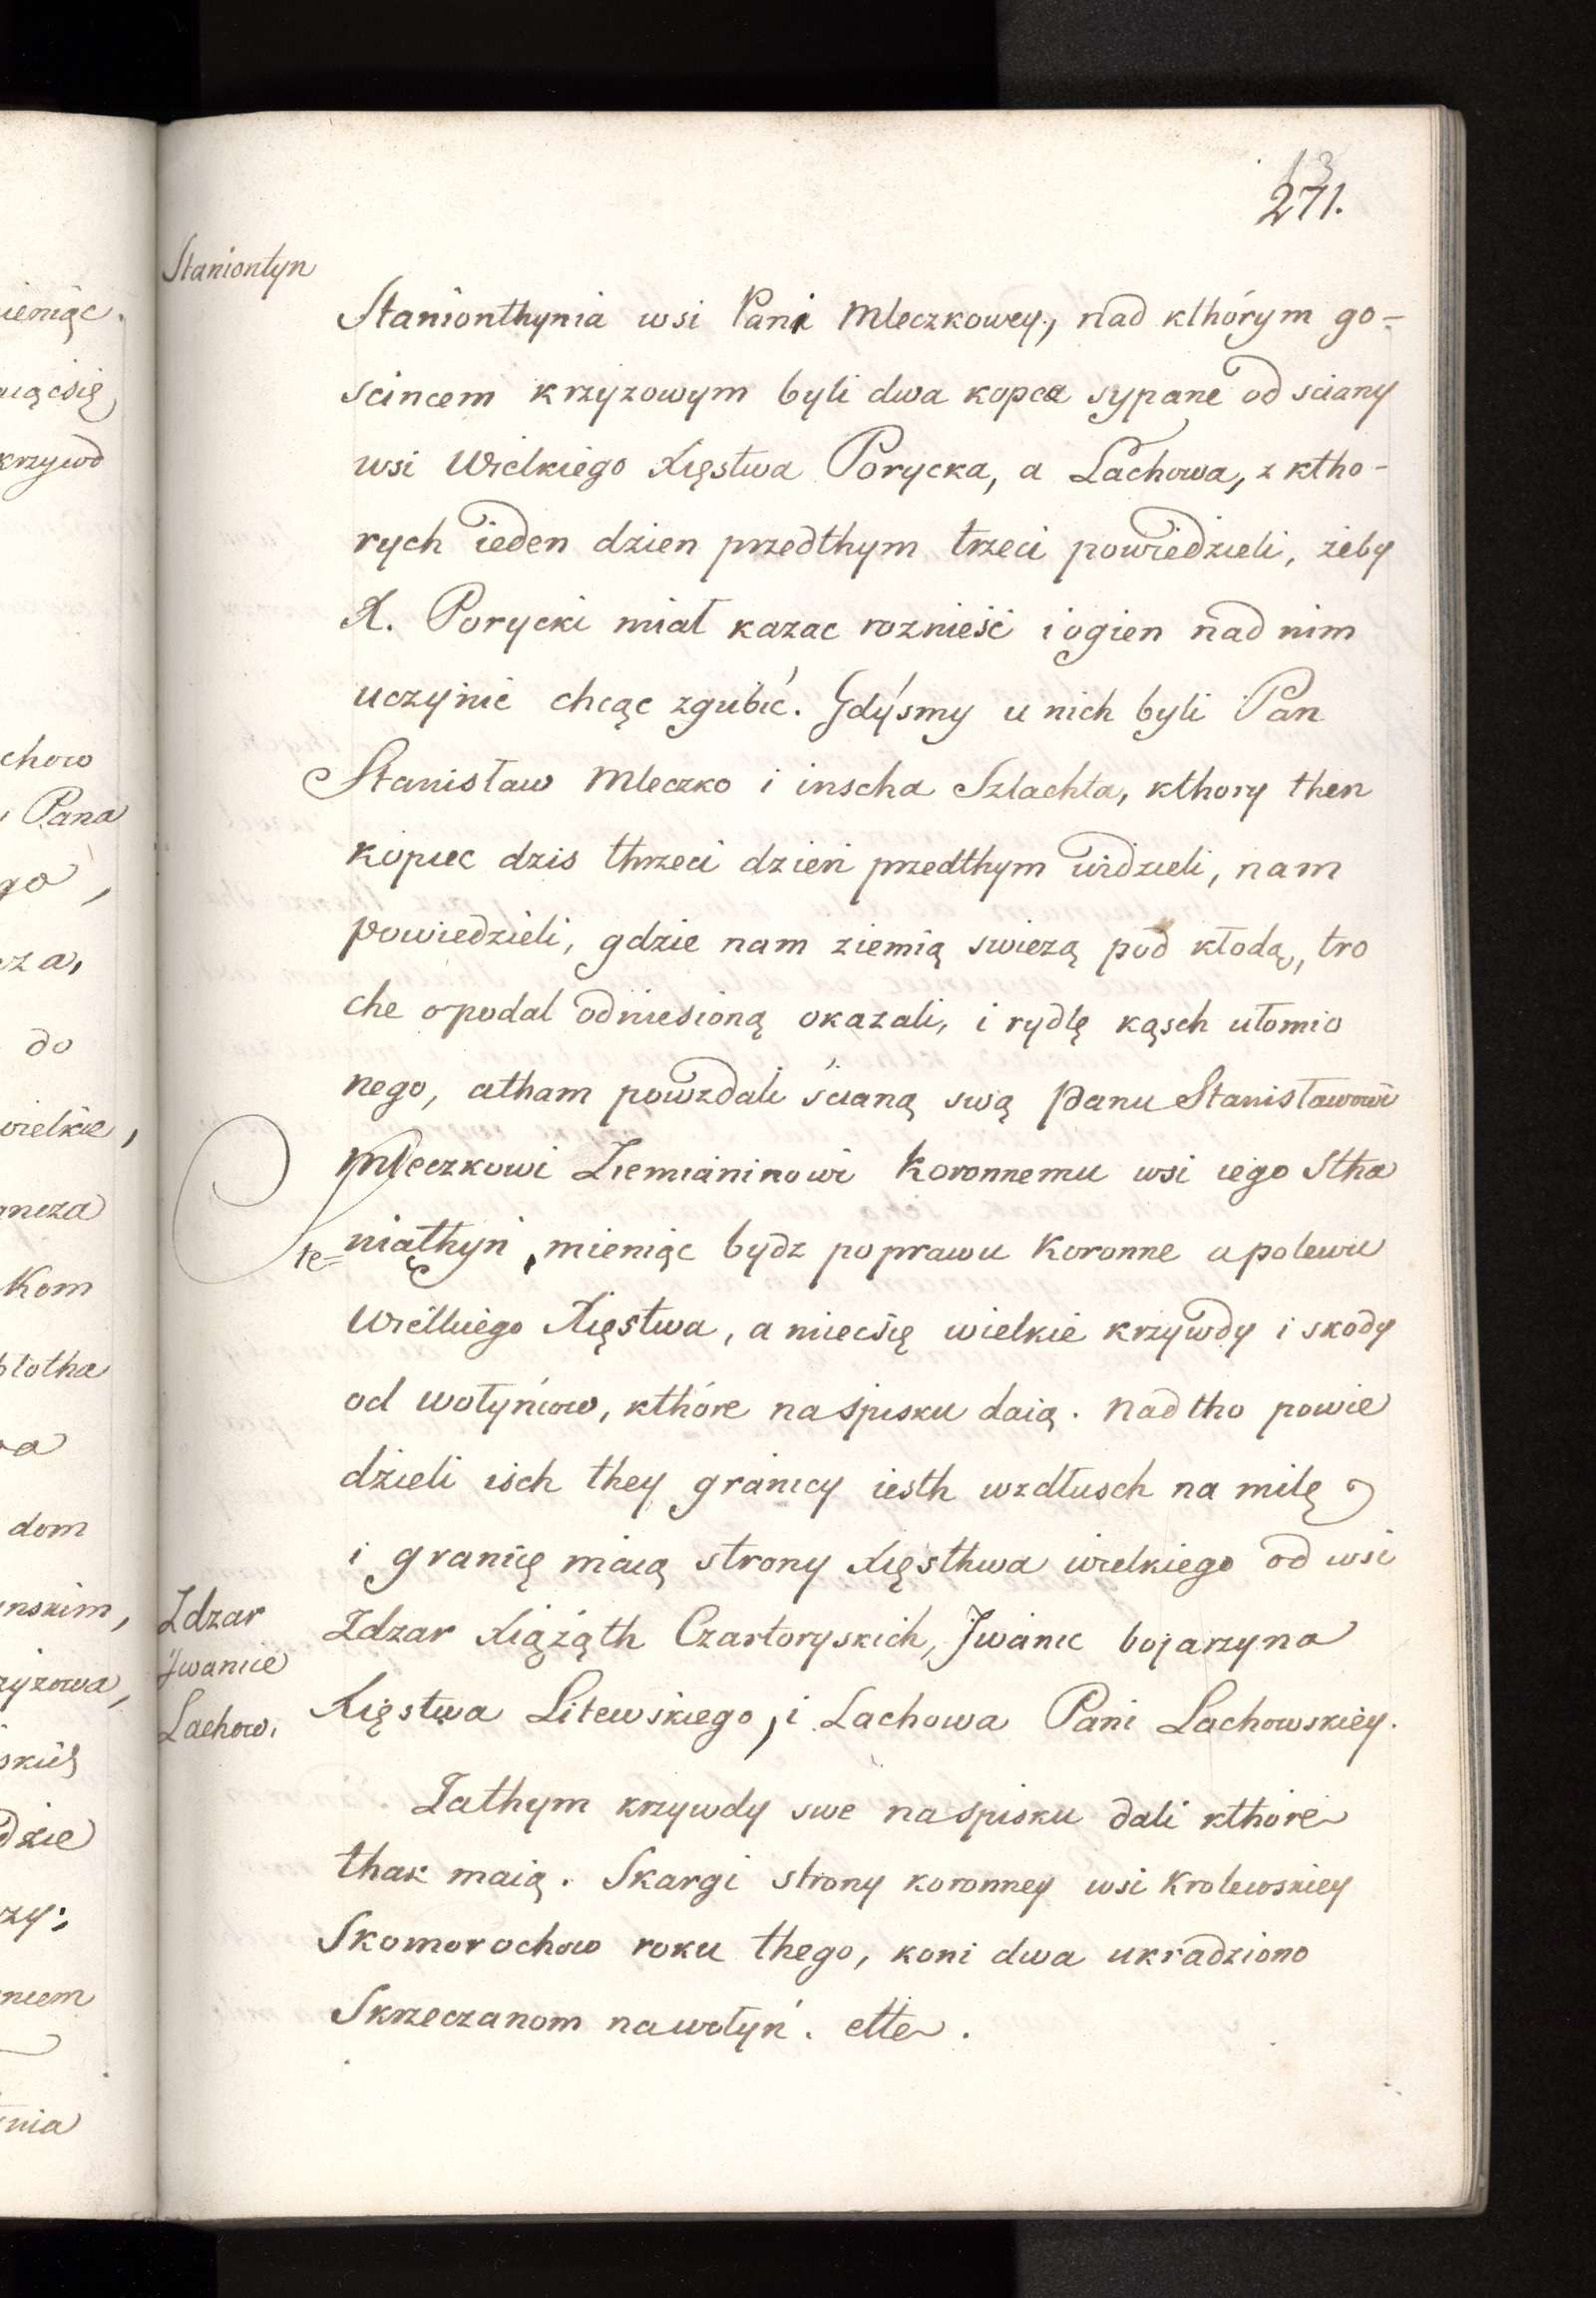 13
271.
Staniontyn
Stanionthynia wsi Pani Mleczkowey, nad kthórym go-
scincem krzyzowym byli dwa kopca sypane od sciany
wsi Wielkiego Xięstwa Porycka, a Lachowa, z ktho-
rych ieden dzien przedthym trzeci powiedzieli, żeby
X. Porycki miał kazac roznieść i ogien nad nim
uczynic chcąc zgubić. Gdyśmy u nich byli Pan
Stanisław Mleczko i inscha Szlachta, kthory then
kopiec dzis thrzeci dzień przedthym widzieli, nam
powiedzieli, gdzie nam ziemią swiezą pod kłodą, tro
che opodal odniesioną okazali, i rydlę kąsch ułomio
nego, atham powzdali ścianą swą Panu Stanisławowi
Mleczkowi Ziemianinowi Koronnemu wsi iego Stha
te- niąthyń, mieniąc bydz poprawu Koronne apolewu
Wielkiego Xięstwa, a miecsię wielkie krzywdy i skody
od wołyńcow, kthóre na spisku daią. nadtho powie
dzieli isch they granicy iesth wzdłusch na milę
i granicę maią strony Xięsthwa wielkiego od wsi
Zdzar Xiążąth Czartoryskich, Jwanic bojarzyna
Xięstwa Litewskiego, i Lachowa Pani Lachowskiey.
Zdzar
Jwanice
Lachow.
Zathym krzywdy swe na spisku dali kthore
thak maią. Skargi strony koronney wsi Krolewskiey
Skomorochow roku thego, koni dwa ukradziono
Skrzeczanom na wołyń. ette.